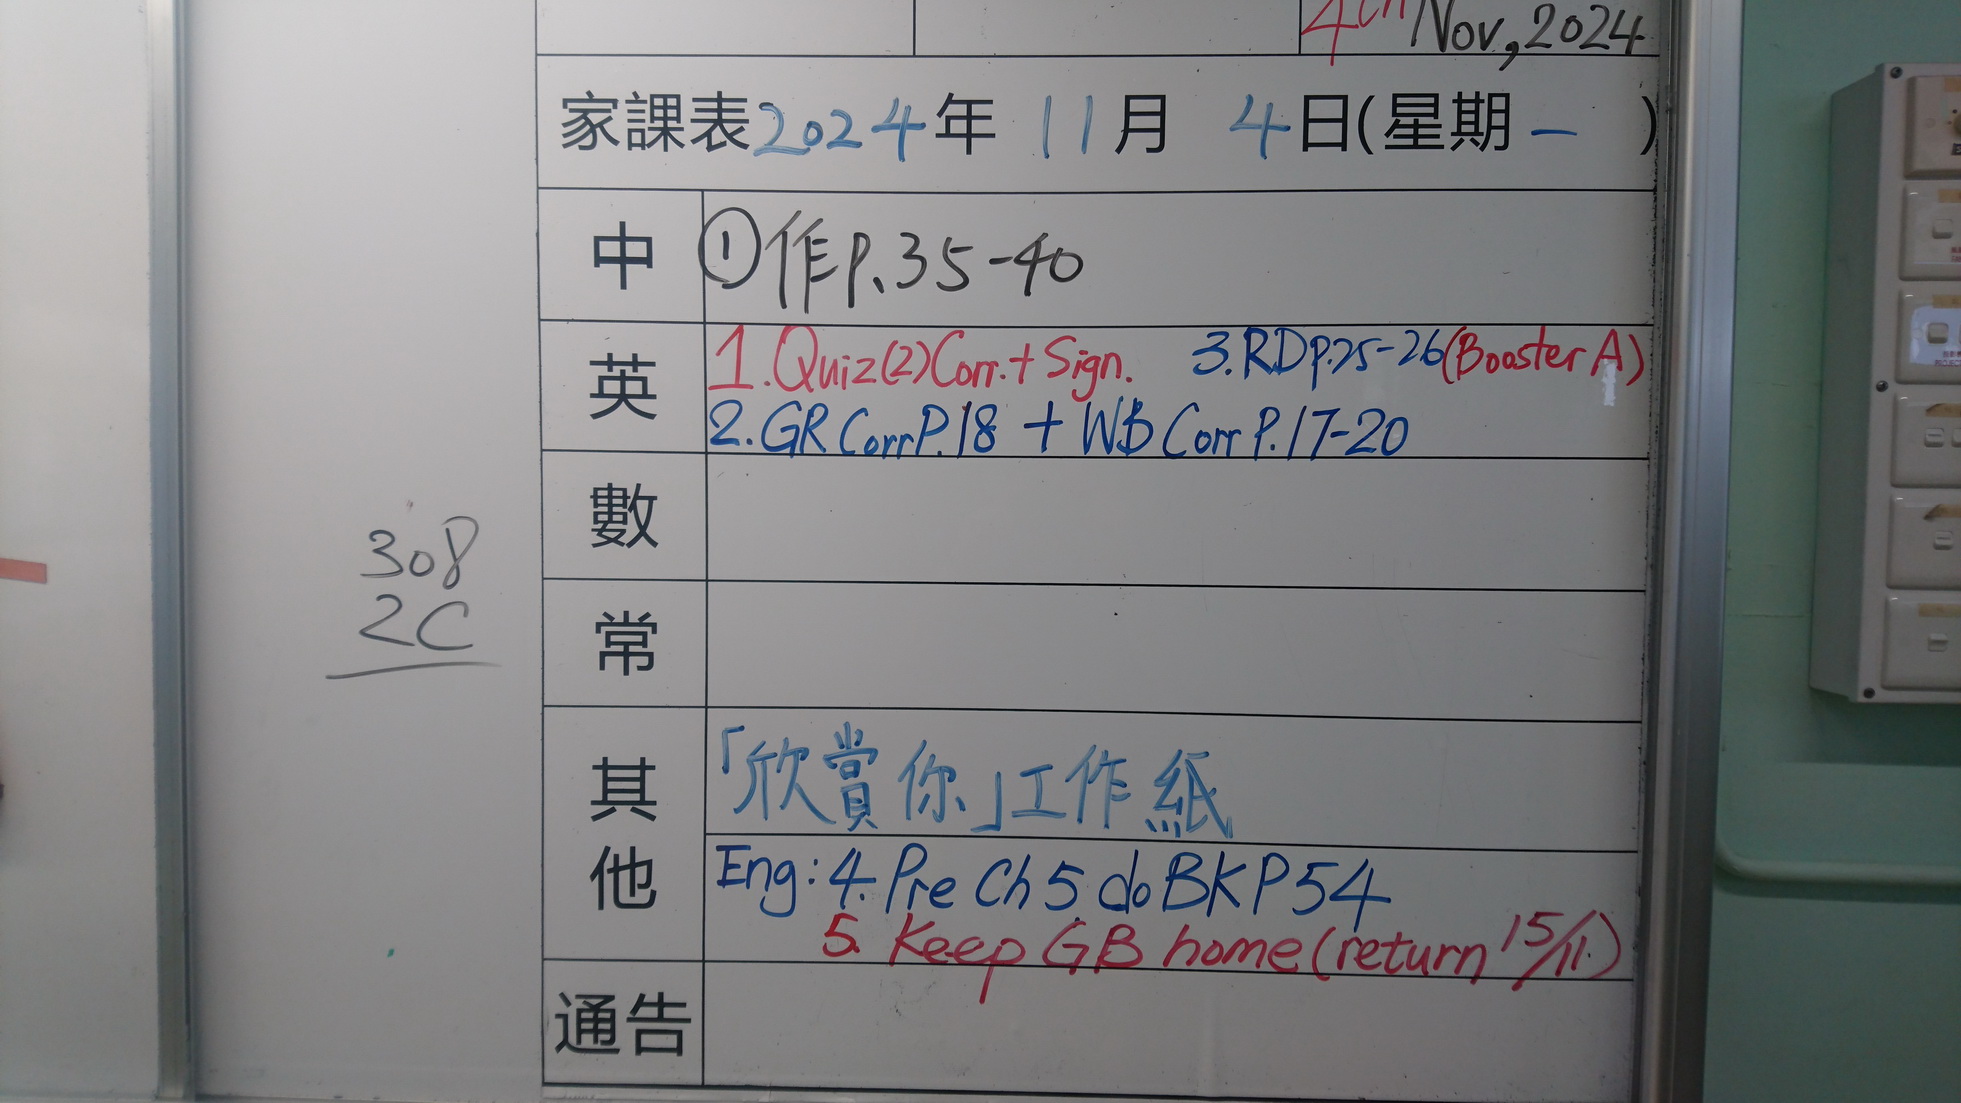 4th Nov, 2024
家課表2024年 11月 4日(星期一 )
中 ①作P.35-40
英 1.Quiz(2)Corr.+ Sign. 3.RDp.25-26(Booster A)
2.GR Corr P.18 + WB Corr P.17-20
數
308
2C
常
其他
「欣賞你」工作紙
Eng: 4. Pre Ch 5 do BK P54
5. Keep GB home (return 15/11)
通告